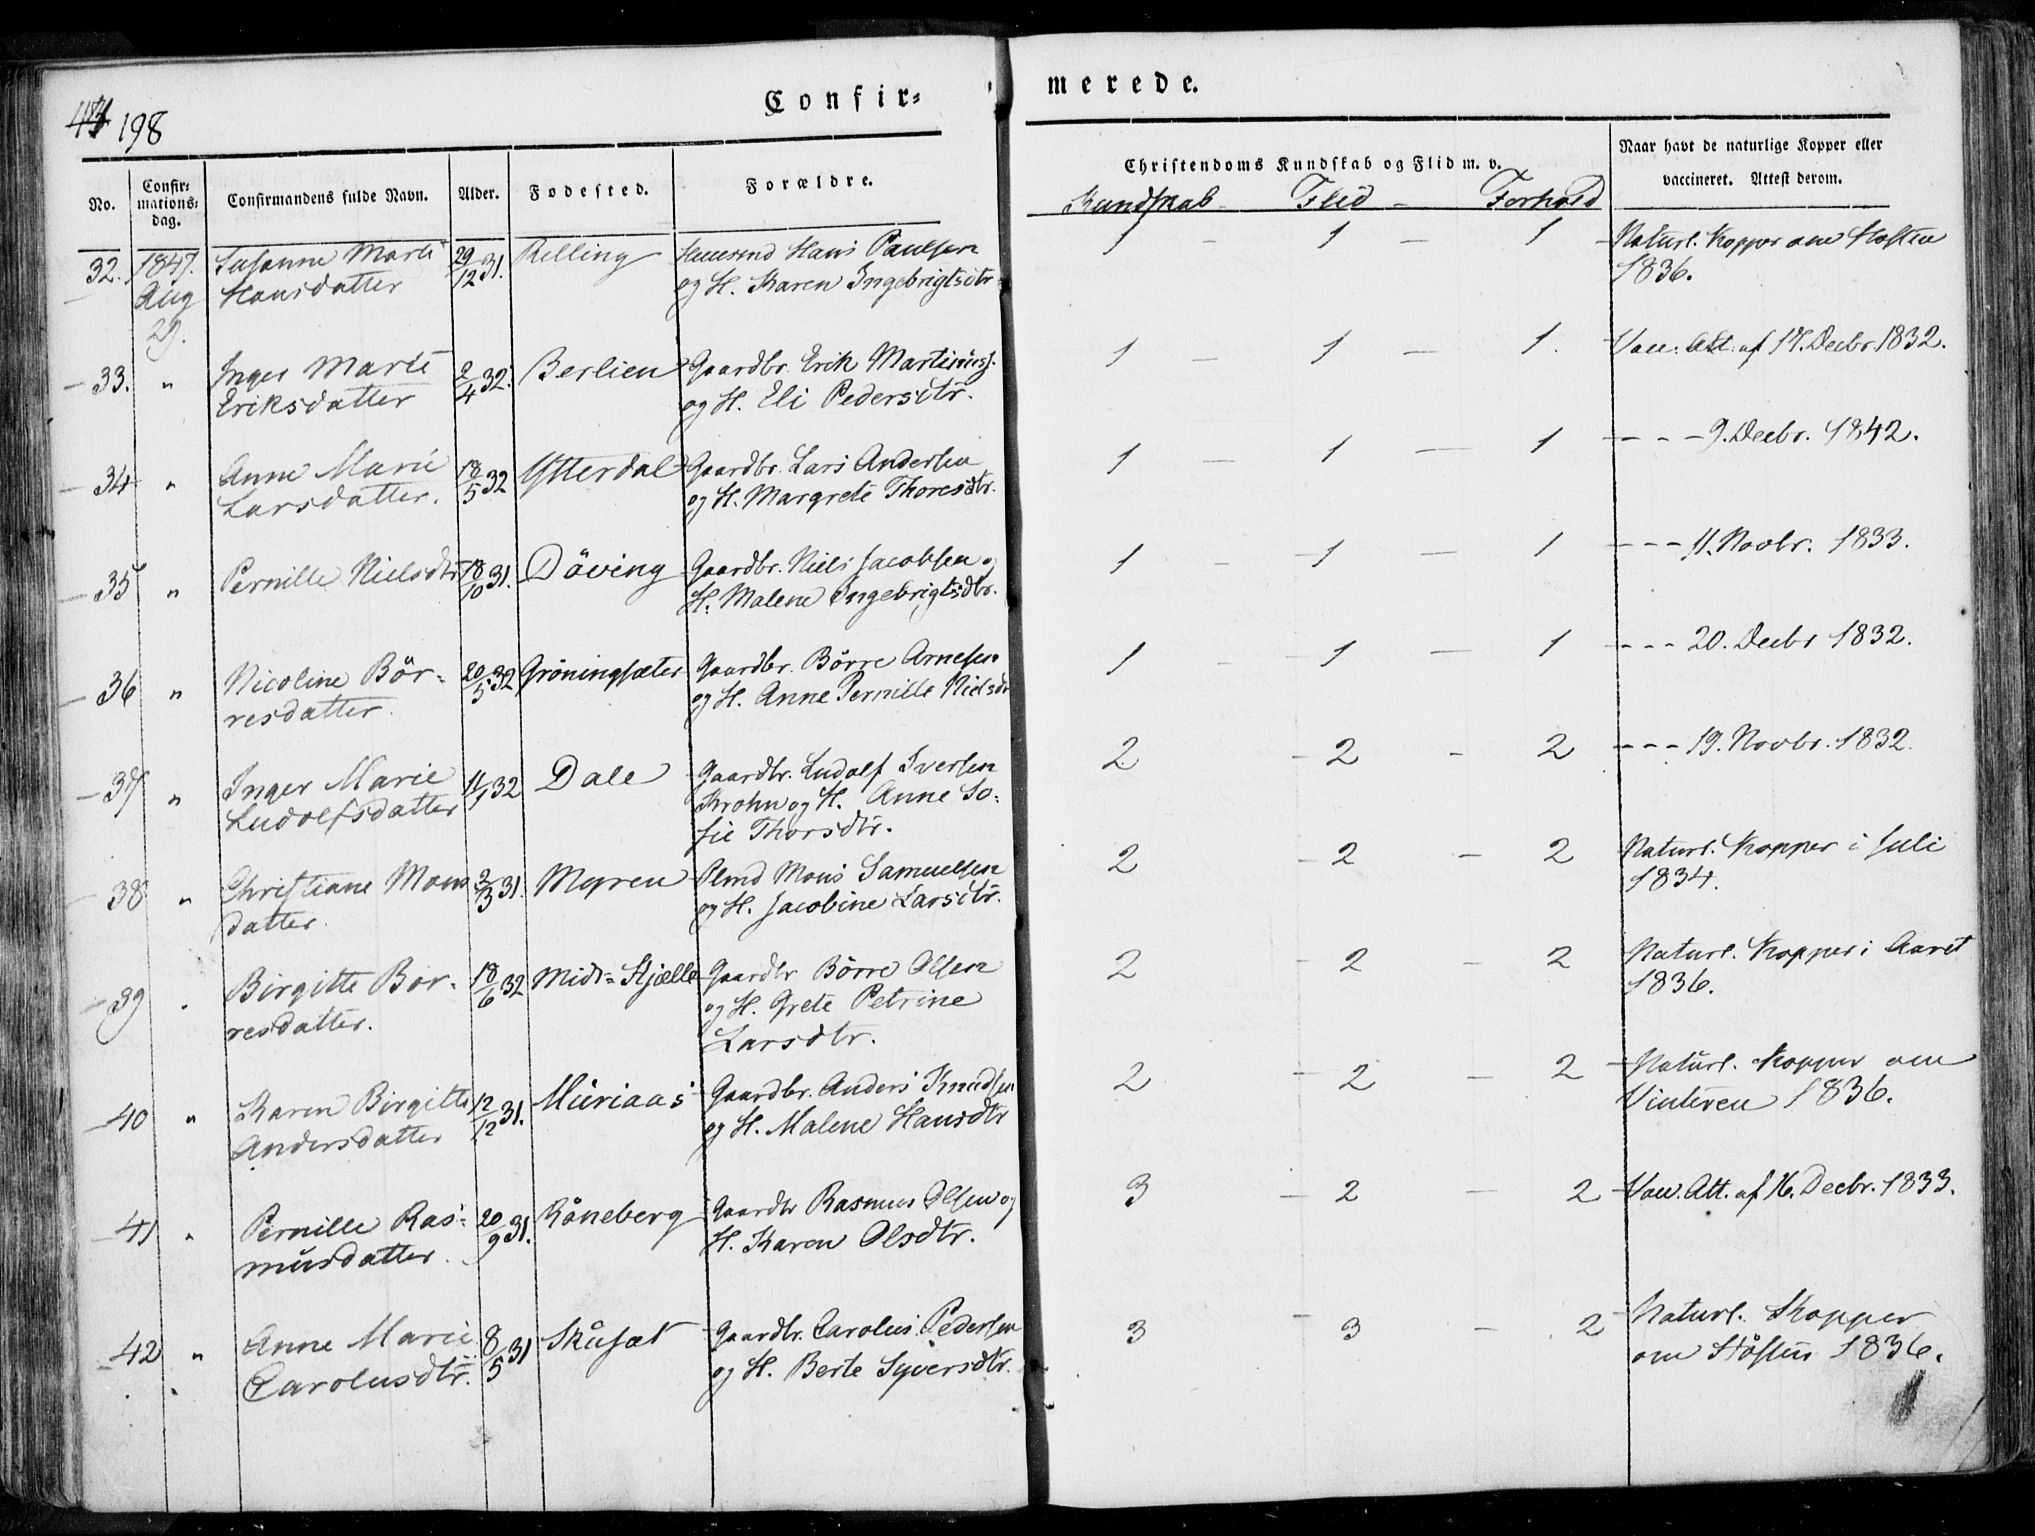 Confir= merede.
198
No.
Confir=
mations=
dag.
Confirmandens fulde Navn.
Alder.
Fodested.
Forældre.
Christendoms Kundskab og Flid m. v.
Kundskab – Flid – Forhold
Naar havt de naturlige Kopper eller
vaccineret. Attest derom.
32. 1847. Aug 29. Susanne Marte
Hansdatter
29/12 31. Relling
Hans Paulsen
og H. Karen Ingebrigtsdtr
1 – 1 – 1
Naturl. Kopper om Høsten
1836.
33. " Inger Marte
Eriksdatter
2/4 32. Berlien
Gaardbr. Erik Martinuss.
og H. Eli Pedersdtr.
1 – 1 – 1.
Vacc. Att. af 17. Decbr. 1832.
34 " Anne Marie
Larsdatter.
18/5 32 Ytterdal
Gaardbr. Lars Andersen
og H. Margrete Thoresdtr.
1 – 1 – 1
– – – 9. Decbr. 1842.
35 " Pernille Nielsdtr
18/10 31. Döving
Gaardbr. Niels Jacobsen og
H. Malene Ingebrigtsdtr.
1 – 1 – 1
– – – 11. Novbr. 1833.
36 " Nicoline Bör=
resdatter.
20/5 32 Gröningsæter
Gaardbr. Börre Arnesen
og H. Anne Pernille Nielsdr
1 – 1 – 1
– – – 20. Decbr 1832.
37 " Inger Marie
Ludolfsdatter
11/1 32 Dale
Gaardbr. Ludolf Iversen
Krohn og H. Anne So=
fie Thorsdtr.
2 – 2 – 2
– – – 19. Novbr. 1832.
38 " Christiane Mons
datter.
2/3 31. Myren
Plmd Mons Samuelsen
og H. Jacobine Larsdtr.
2 – 2 – 2
Naturl. Kopper i Juli
1834.
39 " Birgitte Bör=
resdatter.
18/6 32 Midt=Hjelle
Gaardbr Börre Olsen
og H. Grete Petrine
Larsdtr.
2 – 2 – 2
Naturl. Kopper i Aaret
1836.
40 " Karen Birgitte
Andersdatter
12/12 31. Muriaas
Gaardbr. Anders Knudsen
og H. Malene Hansdtr
2 – 2 – 2
Naturl. Kopper om
Vinteren 1836.
41 " Pernille Ras=
musdatter.
20/9 31. Röneberg
Gaardbr Rasmus Olsen og
H. Karen Olsdtr.
3 – 2 – 2
Vacc. Att. af 16. Decbr. 1833.
42 " Anne Marie
Carolusdtr.
8/5 31 Skusæt
Gaardbr. Carolus Pedersen
og H. Berte Syversdtr.
3 – 3 – 2
Naturl. Kopper
om Hösten 1836.